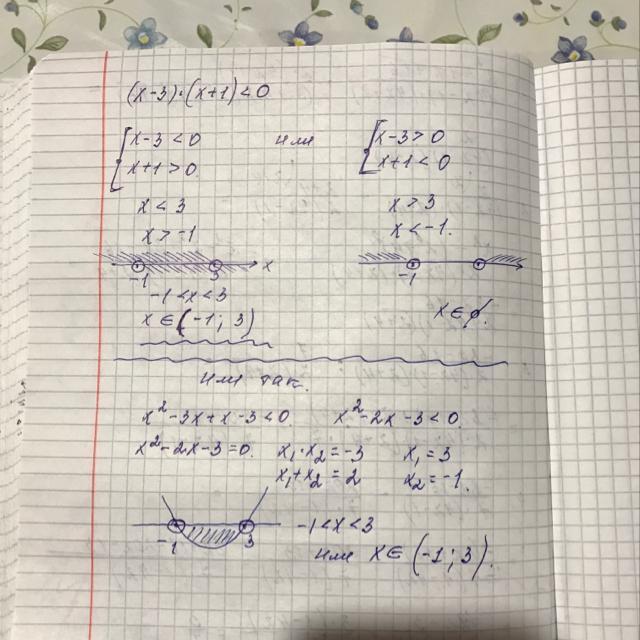 (x-3)·(x+1)<0
x-3<0 или x-3>0
x+1>0 x+1<0
x<3 x>3
x>-1 x<-1.
-1 3 x -1
-1<x<3
x∈(-1; 3) x∈∅.
или так.
x²-3x+x-3<0. x²-2x-3<0.
x²-2x-3=0. x₁·x₂=-3 x₁=3
x₁+x₂=2 x₂=-1.
-1 3 -1<x<3
или x∈(-1; 3).